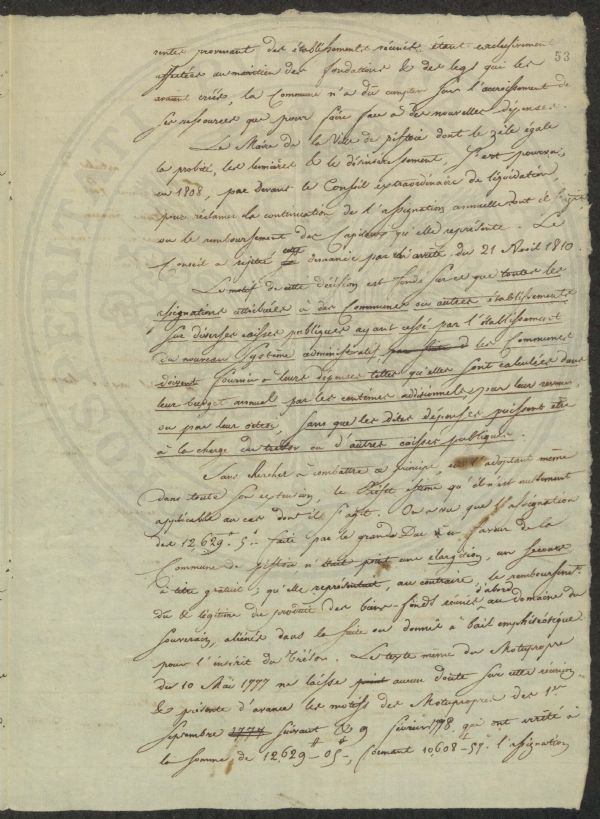 53
rentes provenant des établissements réunis étant exclusivement
affectées au maintien des fondations & des legs qui les
avaient créés, la Commune n'a dû compter sur l'accroissement de
ses ressources que pour faire face à des nouvelles dépenses.
Le Maire de la Ville de Pistoie dont le zèle égale
la probité, les lumières & le désintéressement, s'est pourvu,
en 1808, par devant le Conseil extraordinaire de liquidation
pour réclamer la continuation de l'assignation annuelle dont il s'agit,
ou le remboursement des Capitaux qu'elle représente. Le
Conseil a rejetté cette demande par arrêté du 21 Avril 1810.
Le motif de cette décision est fondé sur ce que toutes les
assignations attribuées à des Communes ou autres établissements
sur diverses caisses publiques ayant cessé par l'établissement
du nouveau système administratif les Communes
doivent fournir à leurs dépenses telles qu'elles sont calculées dans
leur budget annuel par les centimes additionnels, par leur revenus,
ou par leur octroi, sans que les dites dépenses puissent être
à la charge du trésor ou d'autres caisses publiques.
Sans chercher à combattre ce principe, l'adoptant même
dans toute son extension, le Préfet estime qu'il n'est nullement
applicable au cas dont il s'agit. On a vu que l'assignation
des 12,629. 5. faite par le grand Duc en faveur de la
Commune de Pistoie n'était point une élargition, un secours
à titre gratuit; qu'elle représentait, au contraire, le remboursemt.
dû & légitime du produit des biens-fonds réunis d'abord au domaine du
Souverain, aliénés dans la suite ou donnés à bail emphitéotique
pour l'intérêt du Trésor. Le texte même du Motuproprio
du 10 Mai 1777 ne laisse aucun doute sur cette réunion
& présente d'avance les motifs des Motuproprios des 1er
Septembre 1777 suivant & 9 février 1778 qui ont arrêté à
la somme de 12,629 - 05 -, formant 10608 - 57. l'assignation